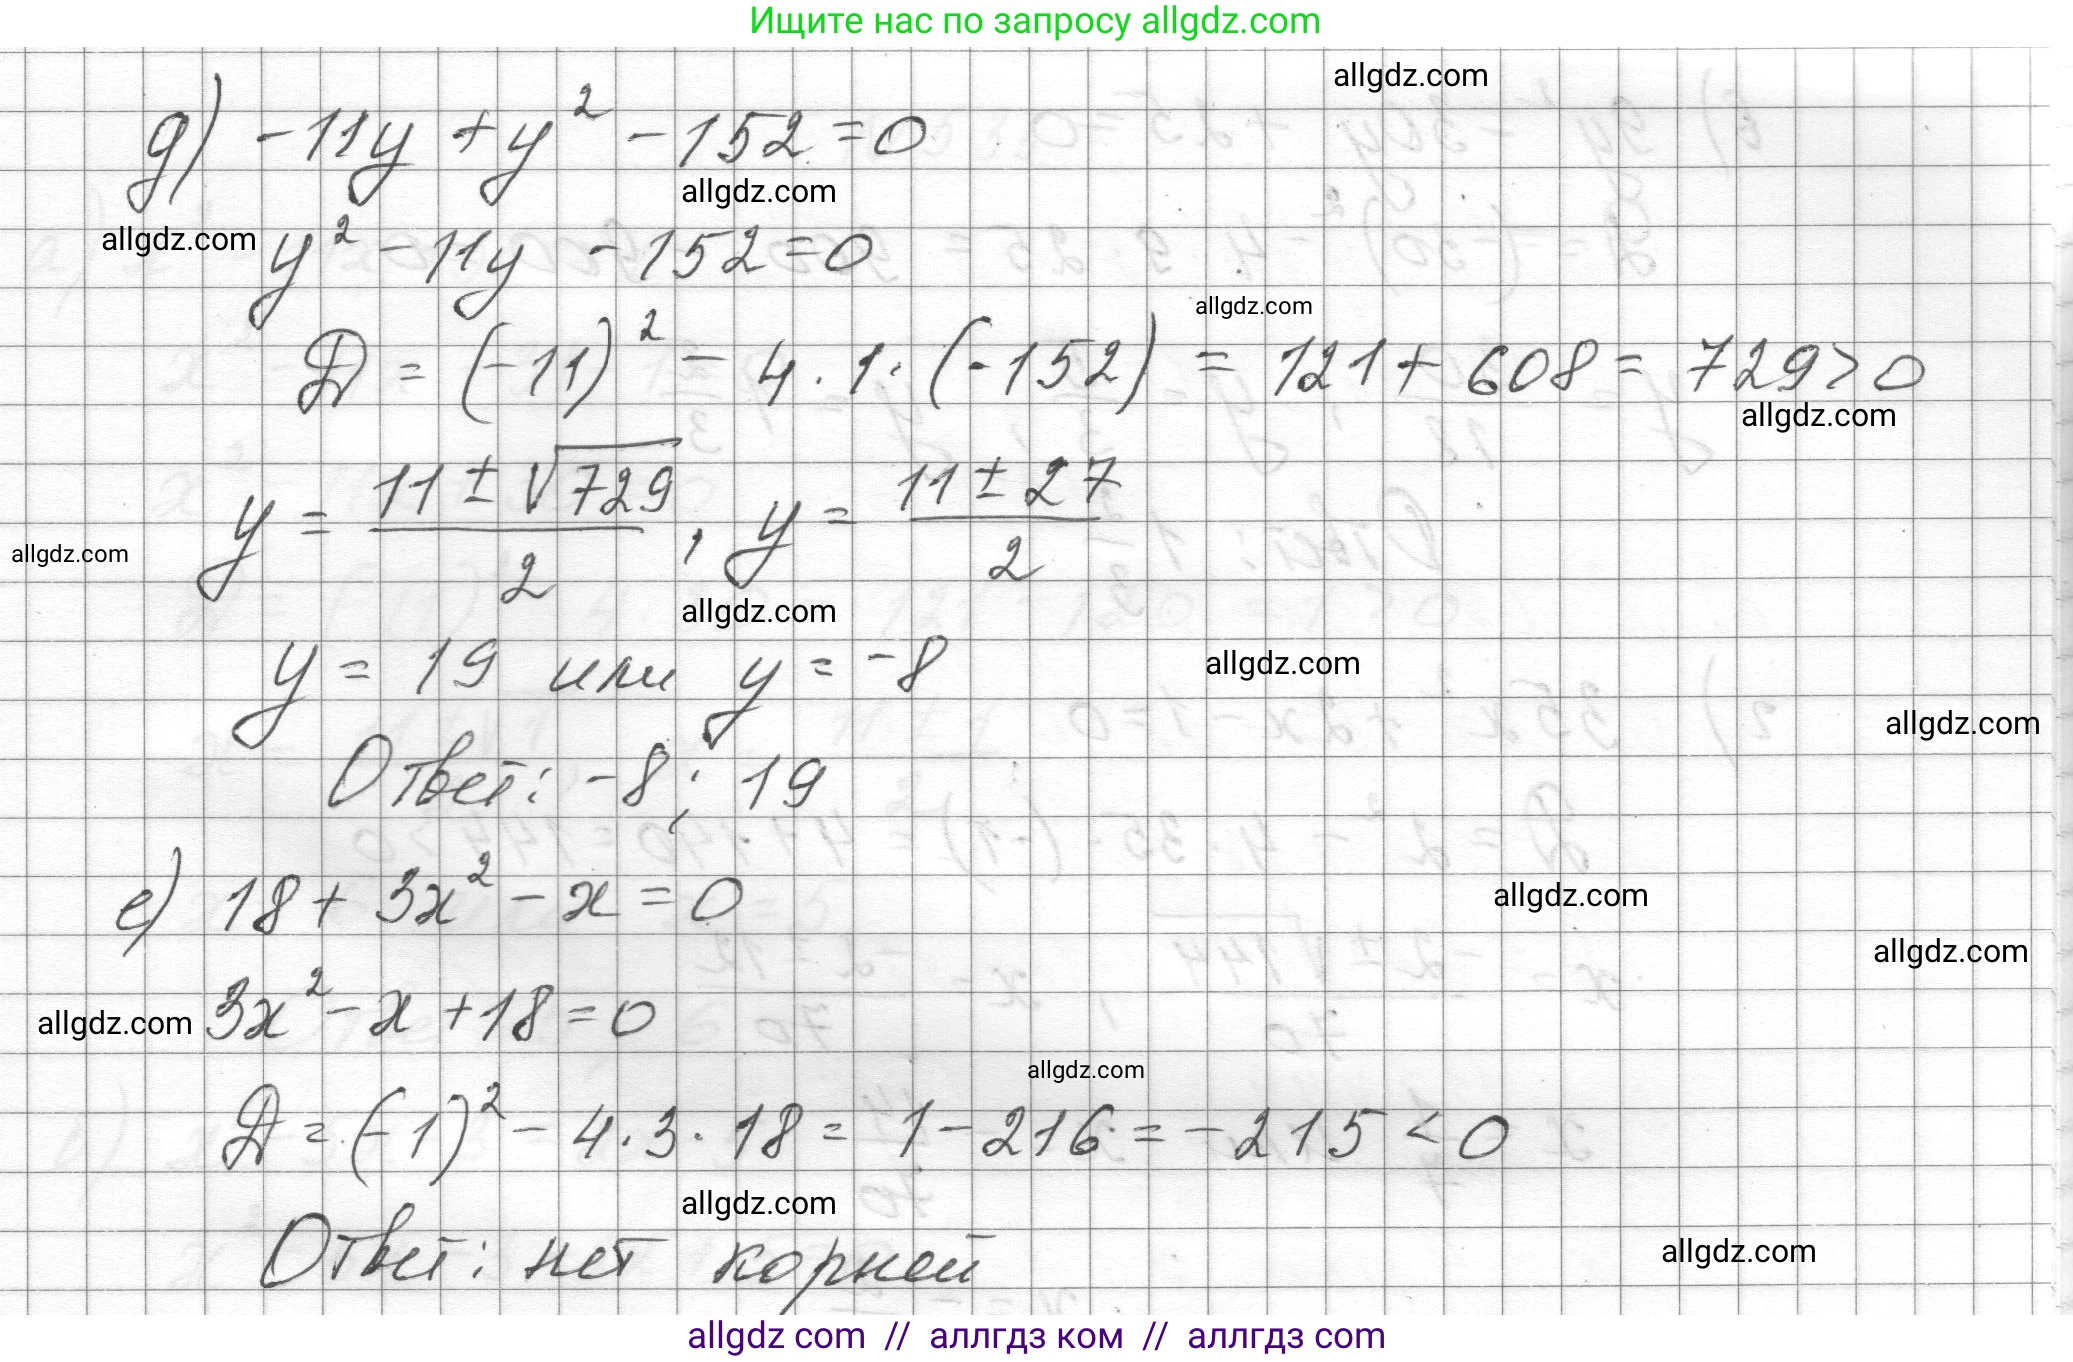 Ищите нас по запросу allgdz.com
allgdz.com
д) -11y + y² - 152 = 0
allgdz.com
allgdz.com
y² - 11y - 152 = 0
allgdz.com
D = (-11)² - 4 · 1 · (-152) = 121 + 608 = 729 > 0
allgdz.com
y = (11 ± √729)/2, y = (11 ± 27)/2
allgdz.com
allgdz.com
y = 19 или y = -8
allgdz.com
allgdz.com
Ответ: -8; 19
е) 18 + 3x² - x = 0
allgdz.com
allgdz.com
3x² - x + 18 = 0
allgdz.com
allgdz.com
D = (-1)² - 4 · 3 · 18 = 1 - 216 = -215 < 0
allgdz.com
Ответ: нет корней
allgdz.com
allgdz com // аллгдз ком // аллгдз com